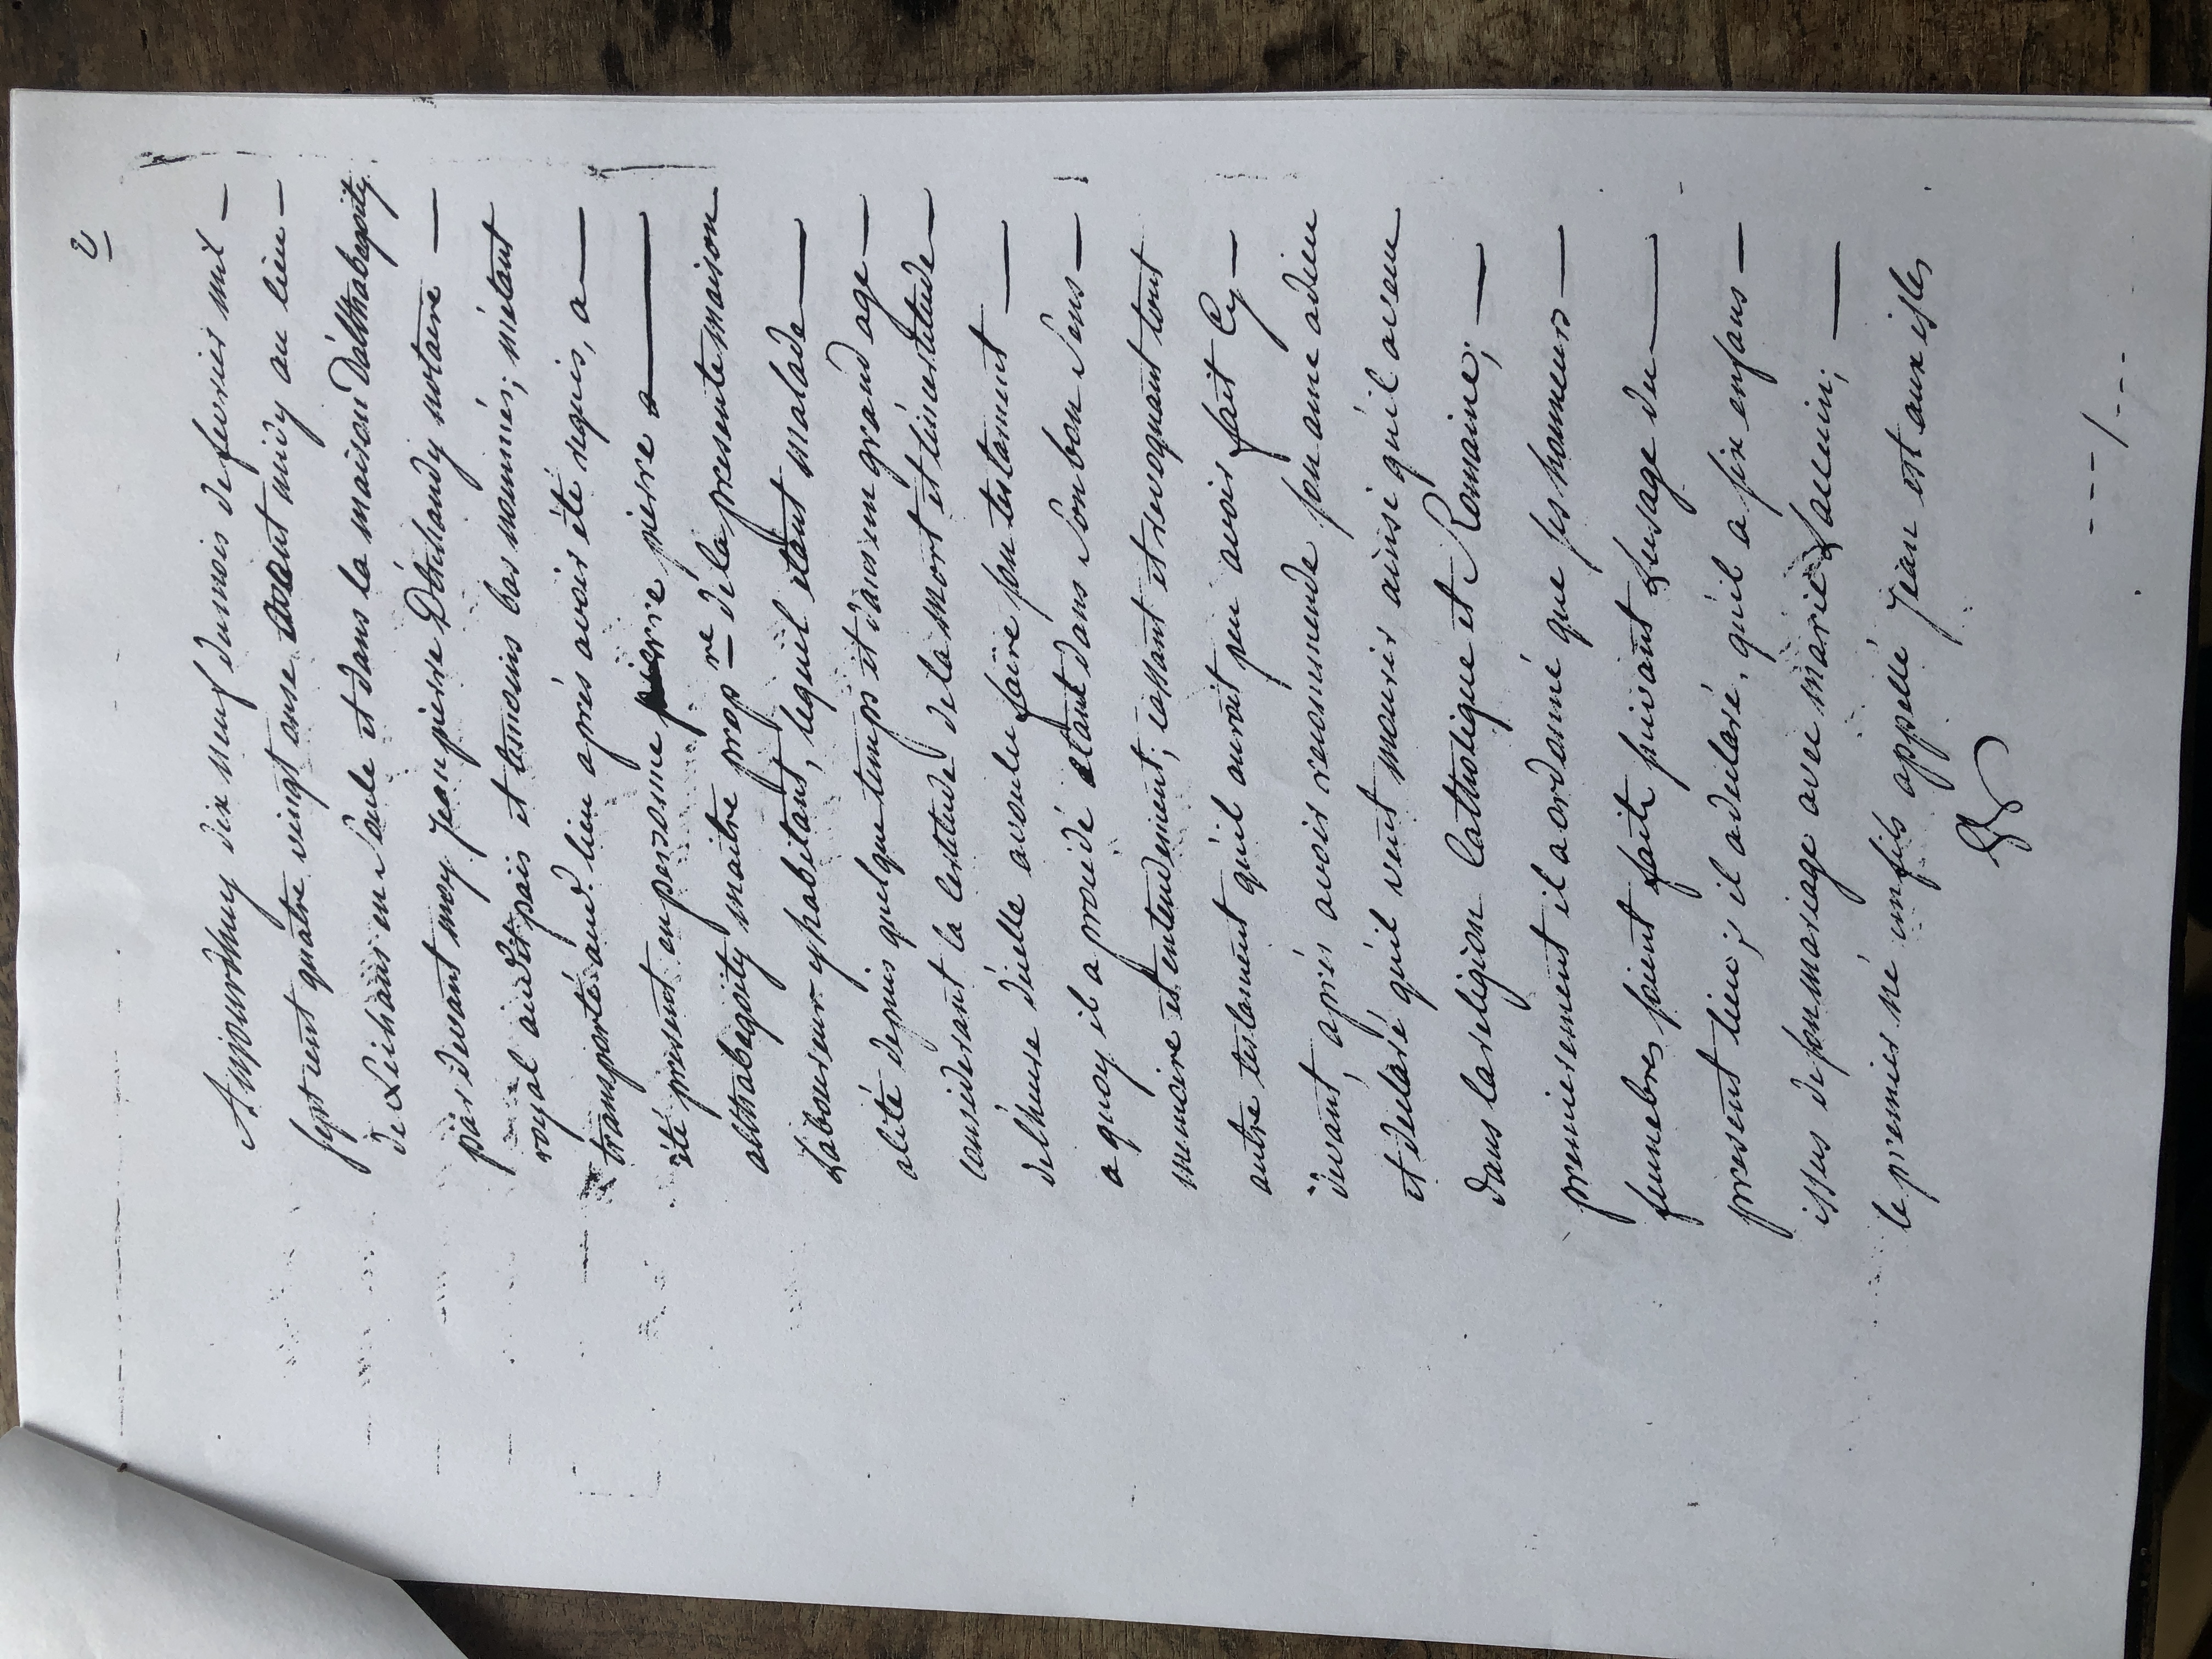 2
Aujourdhuy dix neuf du mois de fevrier mil —
sept cent quatre vingt onse avant midy au lieu —
de Licharre en Soule et dans la maison D'althabegoity
par devant moy Jean pierre Détchandy notaire —
royal audit païs et temoins bas nommés; métant
transporté aud. lieu aprés avoir été requis, a —
été present en personne pierre a —
althabegoity maitre prop re de la presente maison
Laboureur y habitant, lequel etant malade —
alité depuis quelque temps et d'ans un grand age —
considerant la certitude de la mort et l'incertitude —
delheure d'icelle a voulu faire son testament —
a quoy il a procédé etant dans Son bon Sens —
memoire et entendement; cassant et revoquant tout
autre testament qu'il auroit peu avoir fait Cy —
devant, aprés avoir recommendé son ame a dieu
et declaré qu'il veut mourir ainsi qu'il a vecu
dans la religion Catholique et Romaine; —
premierement il a ordonné que ses honneurs —
funebres soient faits suivant Lusage du —
present lieu; il a declaré, qu'il a six enfans —
issus de son mariage avec marie Jaccuin; —
le premier né un fils appellé Jean est aux isles
---/---